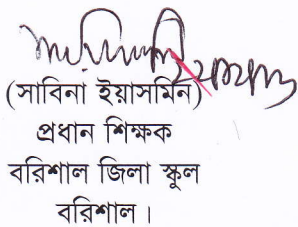 (সাবিনা ইয়াসমিন)
প্রধান শিক্ষক
বরিশাল জিলা স্কুল
বরিশাল।